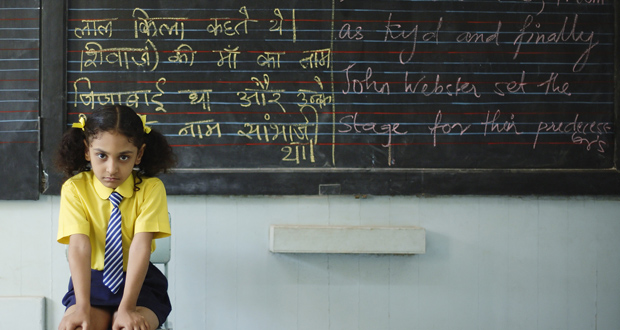 लाल किला कहते थे।
शिवाजी की माँ का नाम
जिजाबाई था और उनके
नाम सांभाजी
था।
as Kyd and finally
John Webster set the
stage for their predecess
ors